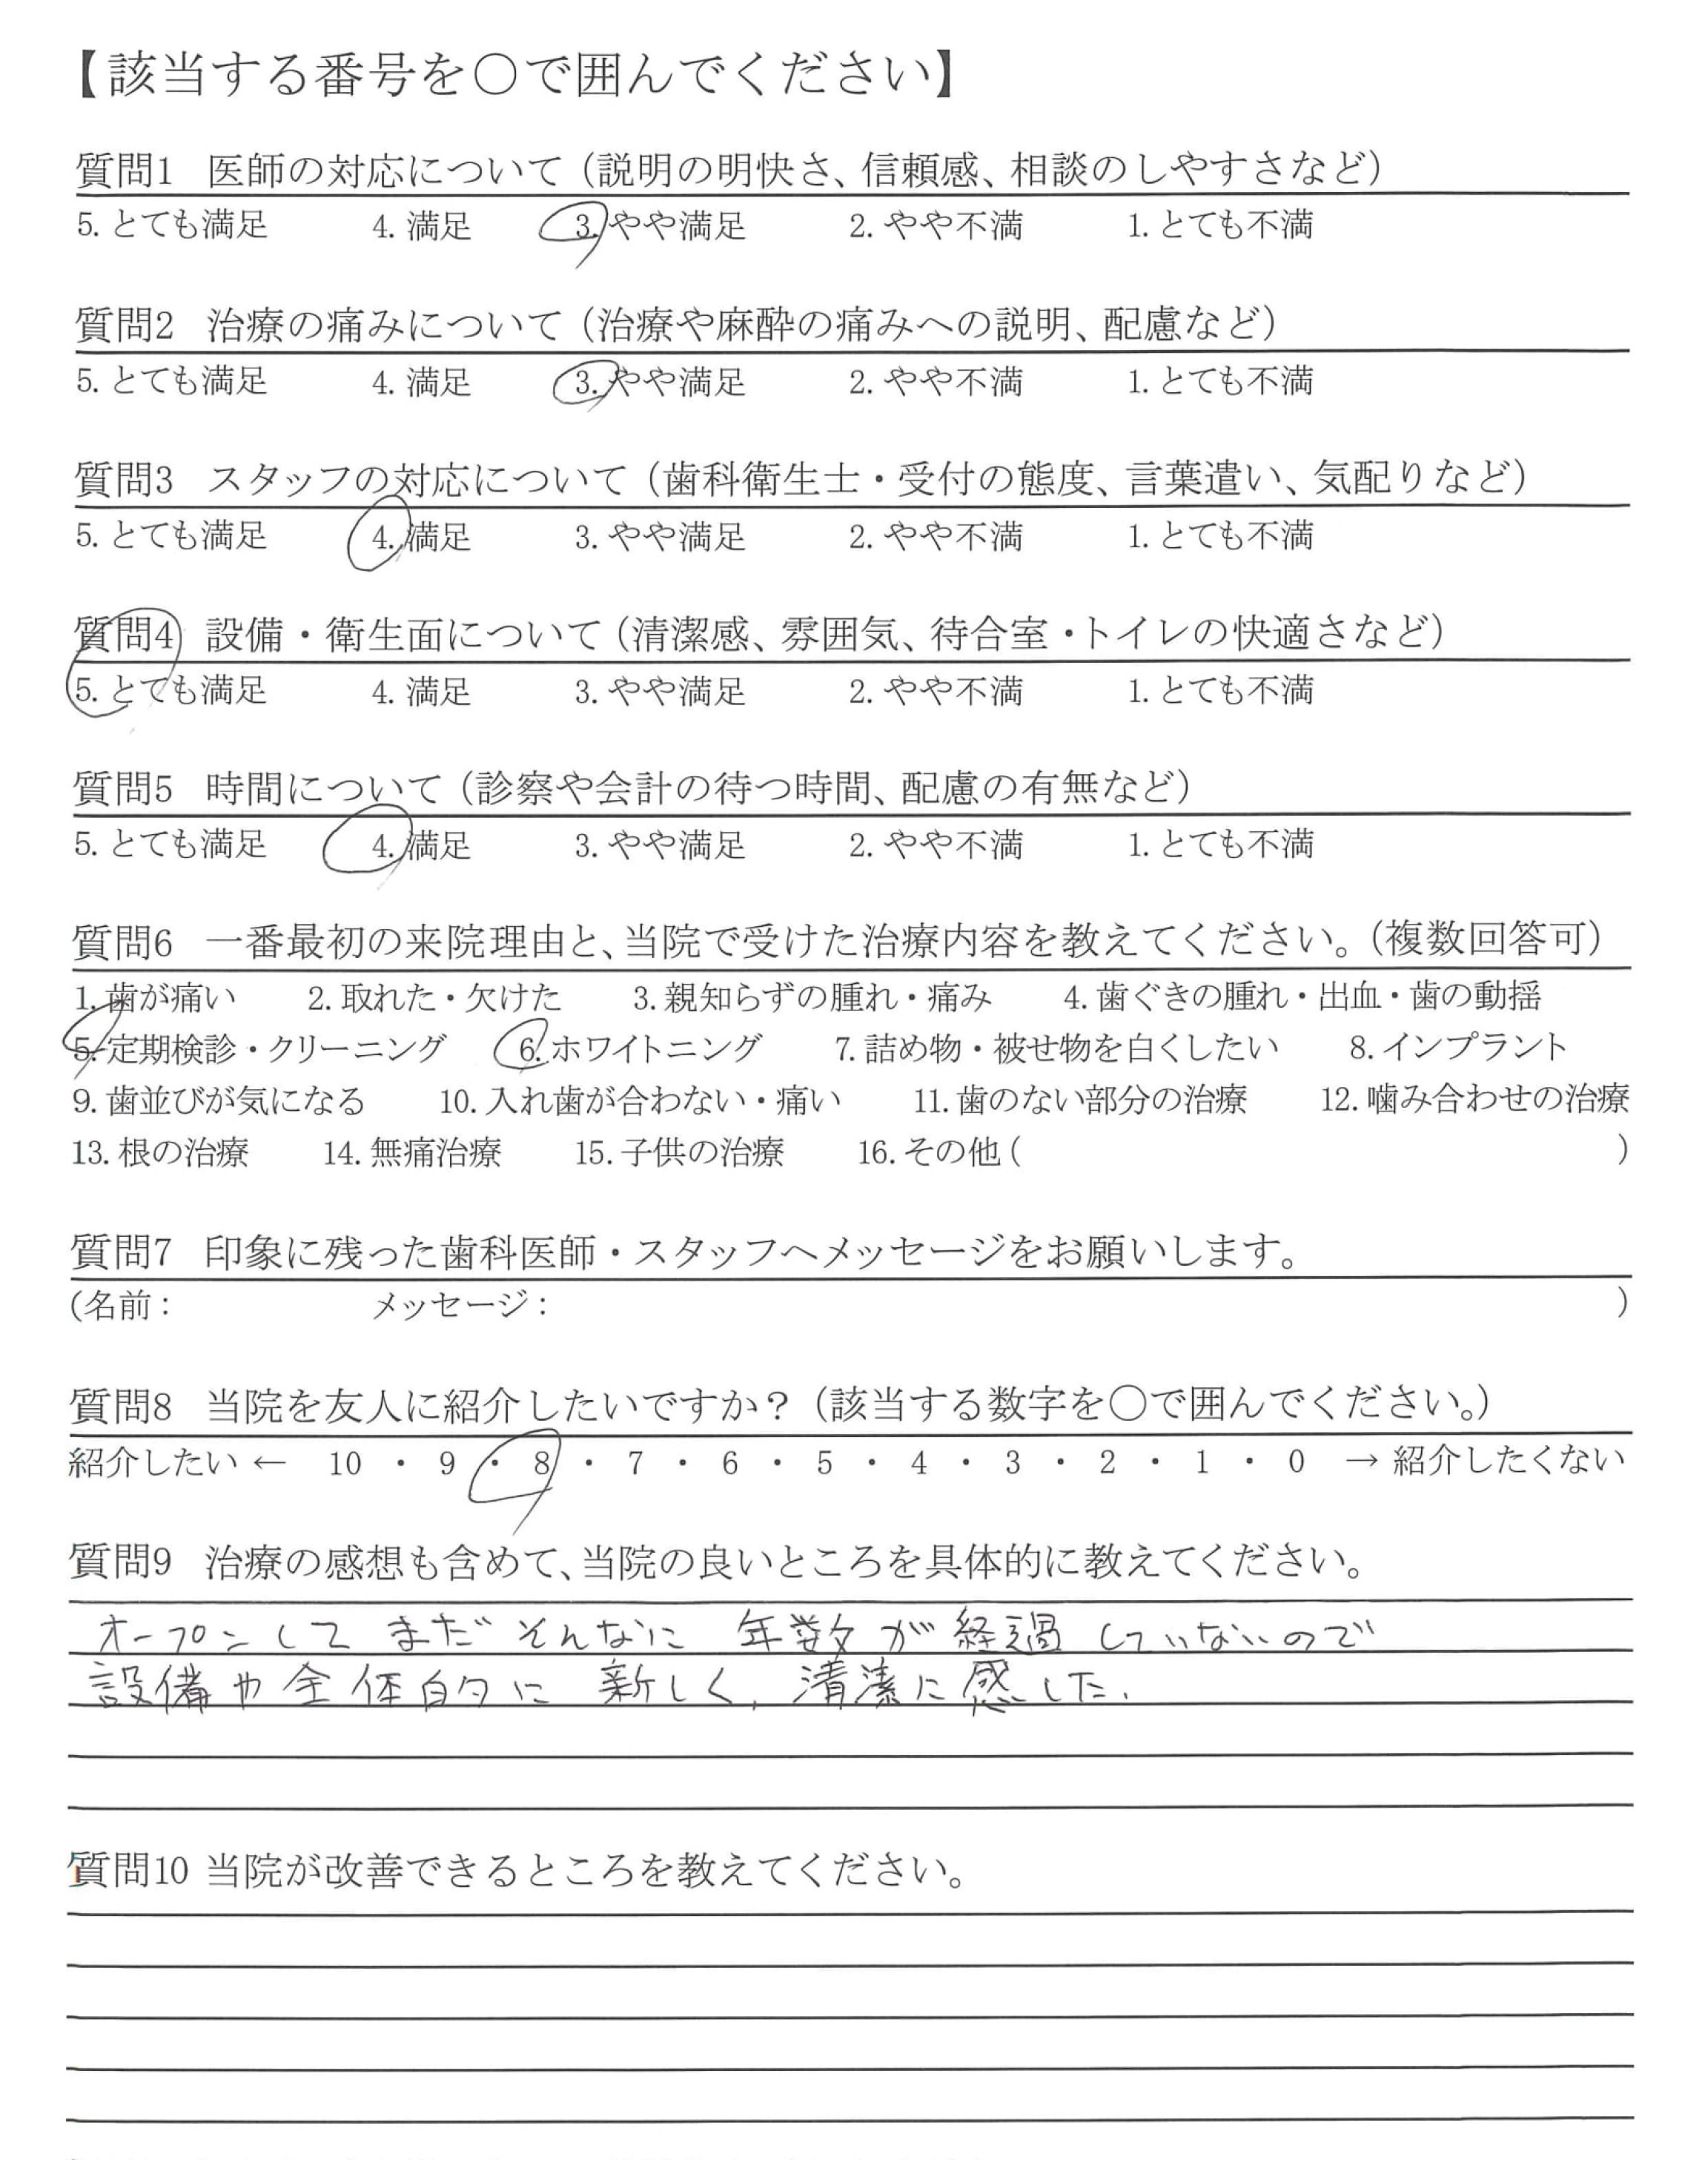 【該当する番号を〇で囲んでください】
質問1 医師の対応について（説明の明快さ、信頼感、相談のしやすさなど）
5. とても満足 4. 満足 3. やや満足 2. やや不満 1. とても不満
質問2 治療の痛みについて（治療や麻酔の痛みへの説明、配慮など）
5. とても満足 4. 満足 3. やや満足 2. やや不満 1. とても不満
質問3 スタッフの対応について（歯科衛生士・受付の態度、言葉遣い、気配りなど）
5. とても満足 4. 満足 3. やや満足 2. やや不満 1. とても不満
質問4 設備・衛生面について（清潔感、雰囲気、待合室・トイレの快適さなど）
5. とても満足 4. 満足 3. やや満足 2. やや不満 1. とても不満
質問5 時間について（診察や会計の待つ時間、配慮の有無など）
5. とても満足 4. 満足 3. やや満足 2. やや不満 1. とても不満
質問6 一番最初の来院理由と、当院で受けた治療内容を教えてください。（複数回答可）
1. 歯が痛い 2. 取れた・欠けた 3. 親知らずの腫れ・痛み 4. 歯ぐきの腫れ・出血・歯の動揺
5. 定期検診・クリーニング 6. ホワイトニング 7. 詰め物・被せ物を白くしたい 8. インプラント
9. 歯並びが気になる 10. 入れ歯が合わない・痛い 11. 歯のない部分の治療 12. 噛み合わせの治療
13. 根の治療 14. 無痛治療 15. 子供の治療 16. その他（ ）
質問7 印象に残った歯科医師・スタッフへメッセージをお願いします。
（名前： メッセージ： ）
質問8 当院を友人に紹介したいですか？（該当する数字を〇で囲んでください。）
紹介したい ← 10 ・ 9 ・ 8 ・ 7 ・ 6 ・ 5 ・ 4 ・ 3 ・ 2 ・ 1 ・ 0 → 紹介したくない
質問9 治療の感想も含めて、当院の良いところを具体的に教えてください。
オープンしてまだそんなに年数が経過していないので
設備や全体的に新しく、清潔に感した.
質問10 当院が改善できるところを教えてください。